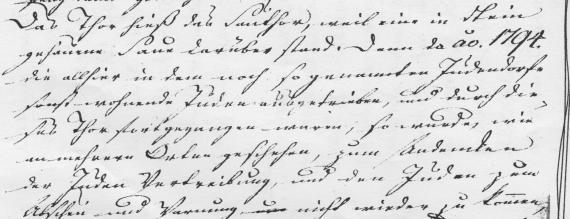 Das Thor hieß das Sauthor, weil eine in Stein
gehauene Saue darüber stand. Denn da ao. 1794.
die allhier in dem noch so genannten Judendorfe
sonst wohnende Juden ausgetrieben, und durch die-
ses Thor fortgegangen waren, so wurde, wie
an mehrern Orten geschehen, zum Andenken
der Juden Vertreibung, und den Juden zum
Abscheu und Warnung nicht wieder zu kommen,